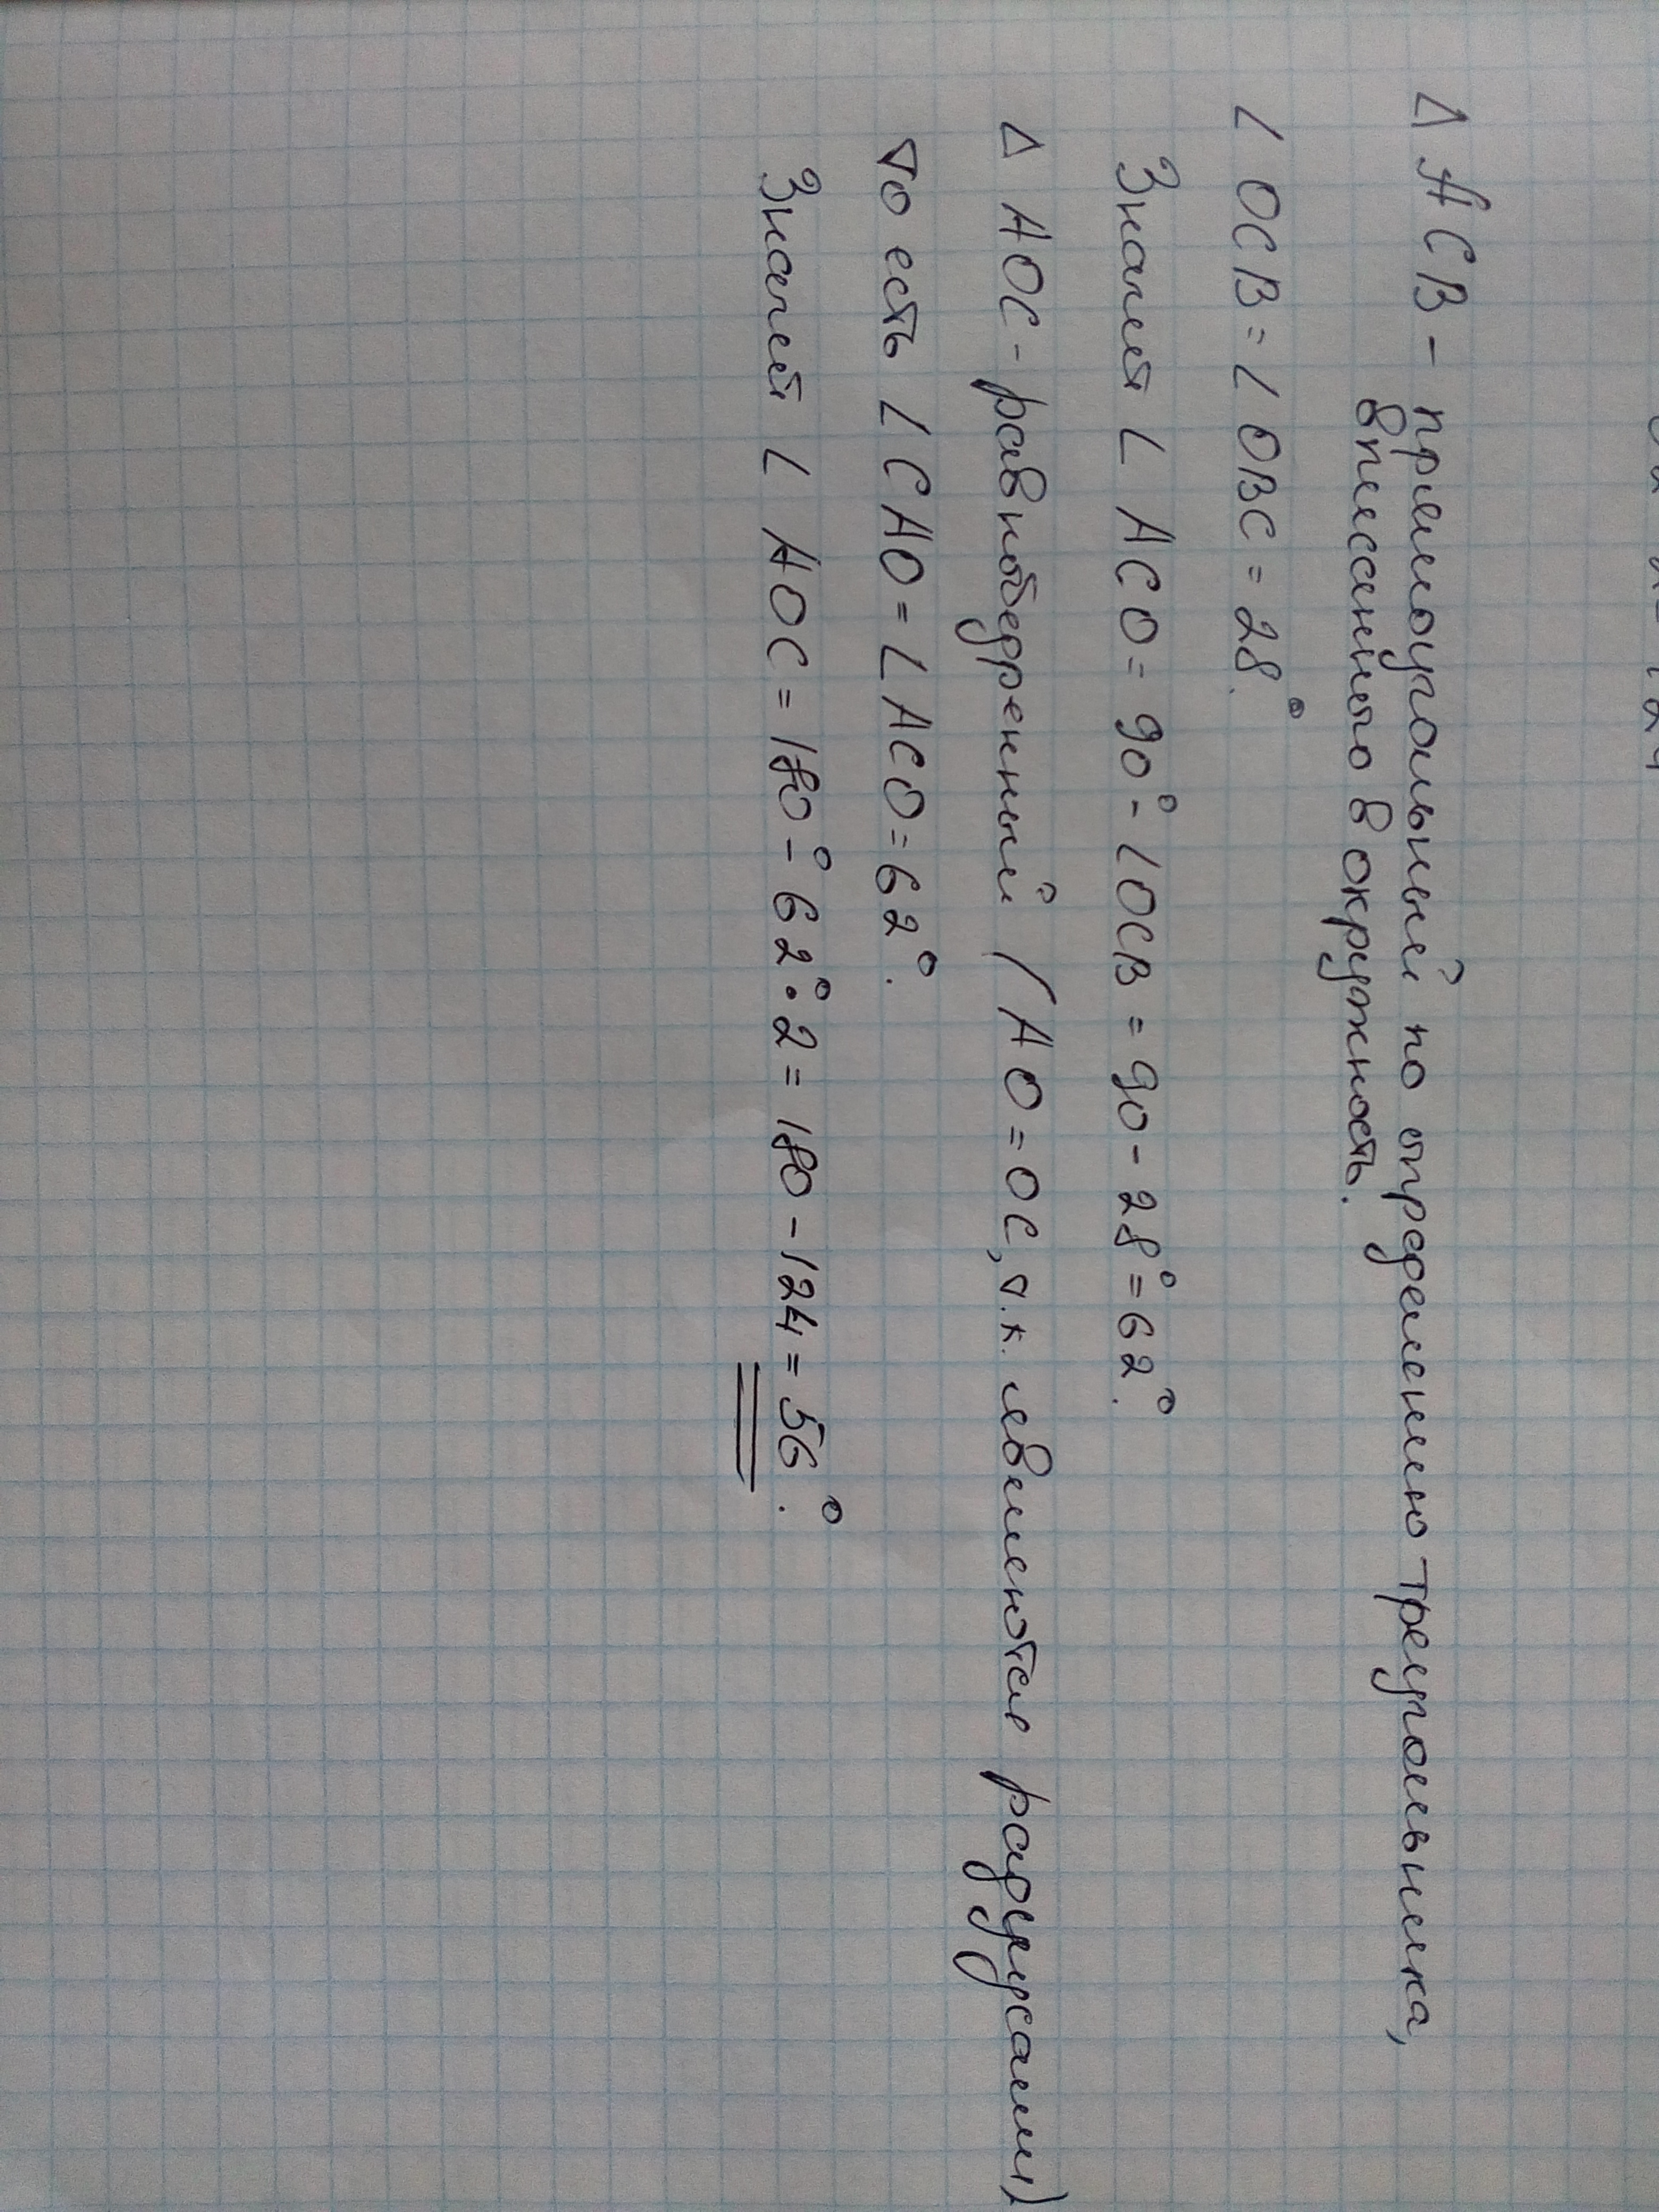 Δ АСВ - прямоугольный по определению треугольника,
вписанного в окружность.
∠ ОСВ = ∠ ОВС = 28°.
Значит ∠ АСО = 90° - ∠ОСВ = 90 - 28° = 62°.
Δ АОС - равнобедренный (АО = ОС, т.к. являются радиусами)
то есть ∠ САО = ∠ АСО = 62°.
Значит ∠ АОС = 180° - 62° · 2 = 180 - 124 = 56°.